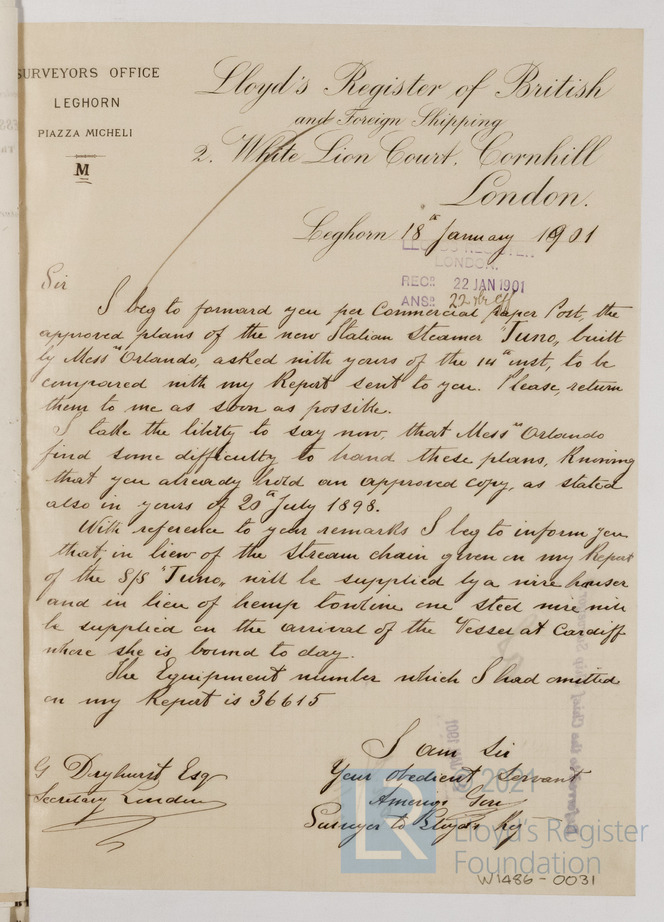 SURVEYORS OFFICE
LEGHORN
PIAZZA MICHELI
M
Lloyd's Register of British
and Foreign Shipping
2. White Lion Court. Cornhill
London.
Leghorn 18th January 1901
LLOYD'S REGISTER
LONDON.
RECD 22 JAN 1901
ANSD 22
Sir
I beg to forward you per Commercial Paper Post, the
approved plans of the new Italian Steamer "Tuno„ built
by Messrs Orlando, asked with yours of the 14th inst, to be
compared with my Report sent to you. Please, return
them to me as soon as possible.
I take the liberty to say now, that Messrs Orlando
find some difficulty to hand these plans, Knowing
that you already hold an approved copy, as stated
also in yours of 20th July 1898.
With reference to your remarks I beg to inform you
that in lieu of the stream chain given on my Report
of the S/S "Tuno„ will be supplied by a wire hawser
and in lieu of hemp towline one steel wire will
be supplied on the arrival of the Vessel at Cardiff
where she is bound to day.
The Equipment number which I had omitted
on my Report is 36615
I am Sir
Your obedient Servant
Surveyor to Lloyd's Reg
G Dryhurst Esq
Secretary London
© 2021
LR
Lloyd's Register
Foundation
W1486-0031